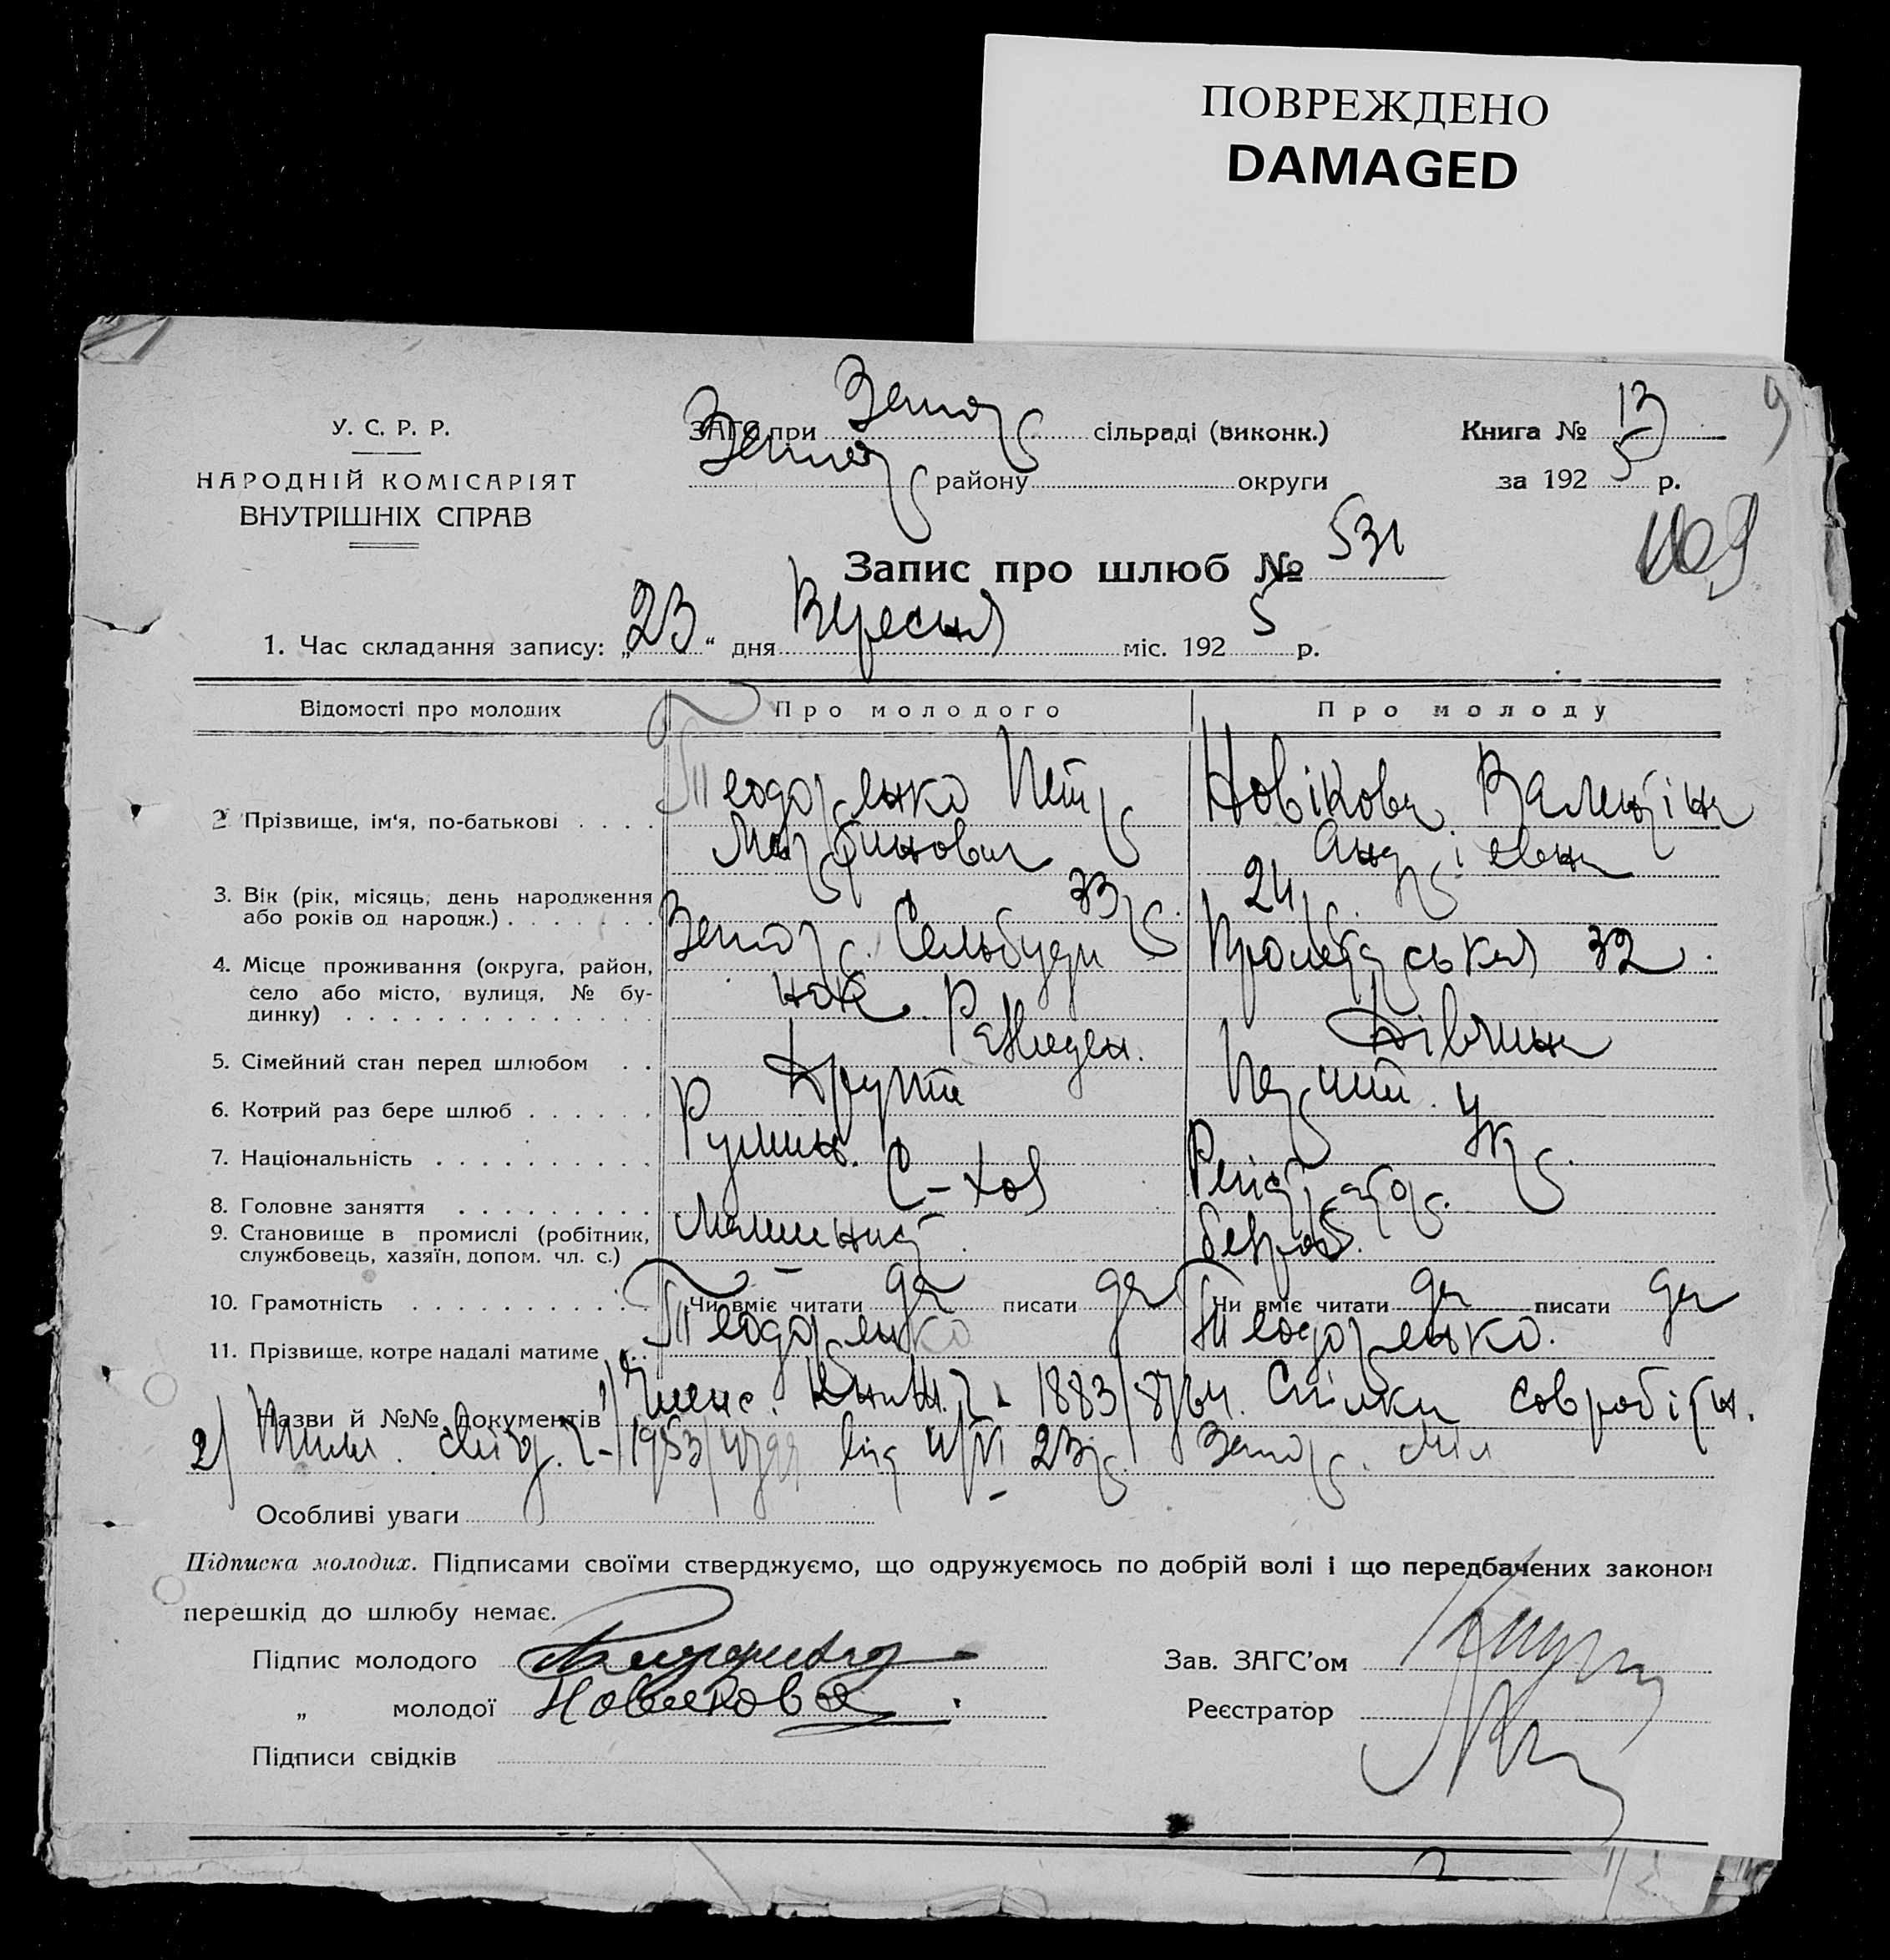 ПОВРЕЖДЕНО
DAMAGED
У. С. Р. Р.
НАРОДНІЙ КОМІСАРІЯТ
ВНУТРІШНІХ СПРАВ
ЗАГС при Запор сільраді (виконк.)
Запор району округи
Книга № 13
за 1925 р.
9
Запис про шлюб № 531
1. Час складання запису: „23“ дня Вересня міс. 1925 р.
Відомості про молодих Про молодого Про молоду
2 Прізвище, ім‘я, по-батькові Теодоренко Петр Новікова Валентіна
Мартинович Андрієвна
3. Вік (рік, місяць, день народження
або років од народж.) 33 р. 24 р.
4. Місце проживання (округа, район,
село або місто, вулиця, № бу-
динку)
Запор. Сельбуди Пролетарськая 32.
5. Сімейний стан перед шлюбом Дівчина
6. Котрий раз бере шлюб Други Перший.
7. Національність Румин. Укр.
8. Головне заняття С-хоз
9. Становище в промислі (робітник,
службовець, хазяїн, допом. чл. с.)
Машиніст безроб.
10. Грамотність Чи вміє читати да писати да Чи вміє читати да писати да
11. Прізвище, котре надалі матиме Теодоренко Теодоренко.
Назви й №№ документів 1) Членс. Книж. 1883/8764. Спілки Совробітн.
2) від 23р. Запор.
Особливі уваги
Підписка молодих. Підписами своїми стверджуємо, що одружуємось по добрій волі і що передбачених законом
перешкід до шлюбу немає.
Підпис молодого
Зав. ЗАГС’ом
„ молодої Новикова
Реєстратор
Підписи свідків